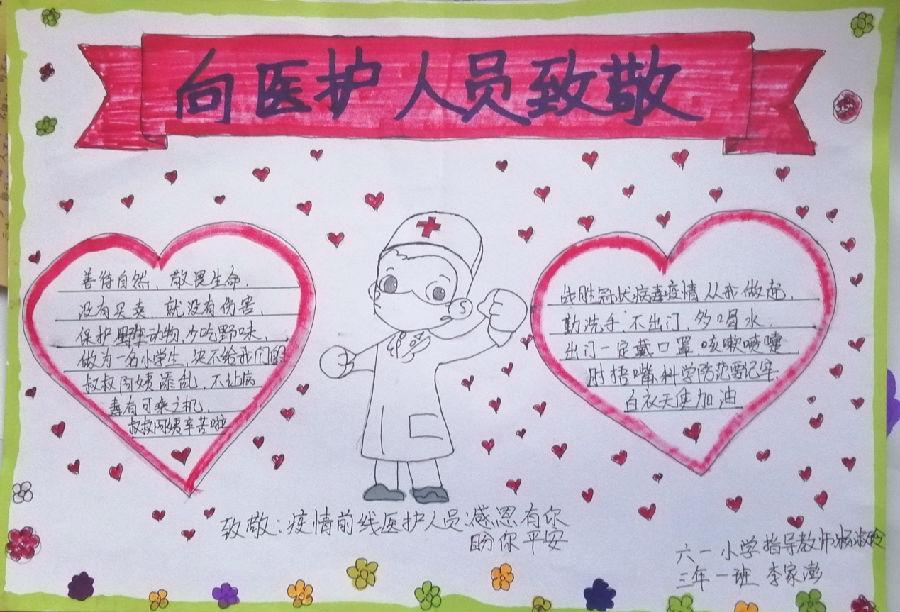 向医护人员致敬
善待自然、敬畏生命.
没有买卖 就没有伤害.
保护野生动物,少吃野味.
做为一名小学生,决不给我们的
叔叔阿姨添乱,不让病
毒有可乘之机.
叔叔阿姨辛苦啦
战胜冠状病毒疫情 从我做起,
勤洗手 不出门,多喝水.
出门一定戴口罩 咳嗽喷嚏
肘捂嘴,科学防范要记牢
白衣天使加油
致敬:疫情前线医护人员:感恩有你
盼你平安
六一小学指导教师
三年一班 李家澎